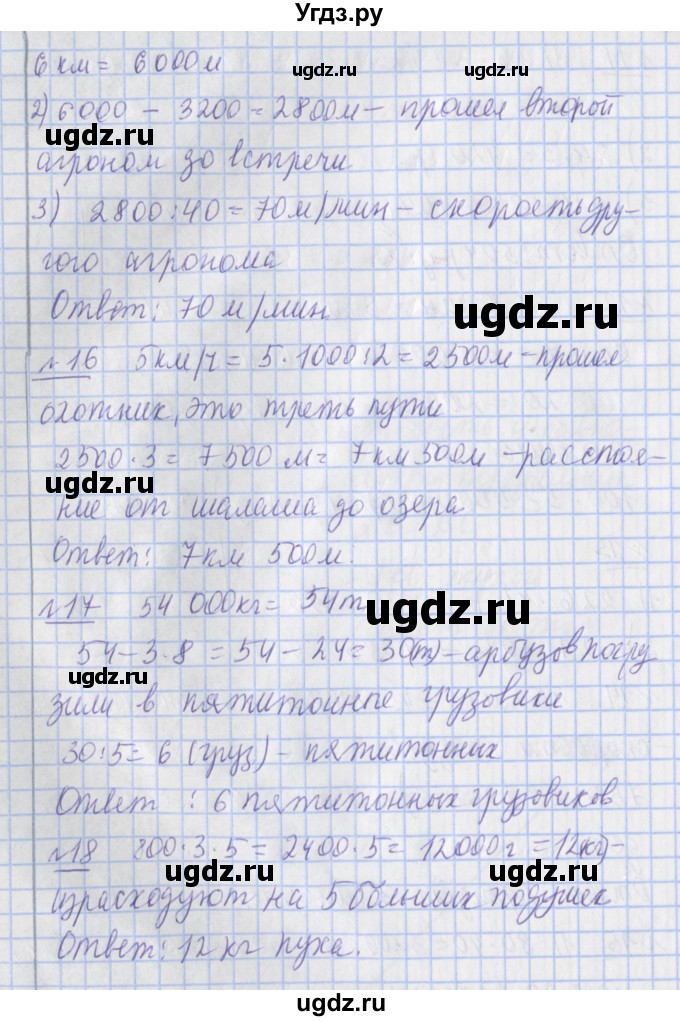 Угдз.ру
6 км = 6000м
ugdz.ru ugdz.ru
2) 6000 - 3200 = 2800м - прошел второй
ugdz.ru
агроном до встречи
3) 2800:40 = 70м/мин - скорость дру-
гого агронома
Ответ: 70 м/мин
ugdz.ru
№16 5км/ч = 5·1000:2 = 2500м - прошел
ugdz.ru
охотник, это треть пути
2500·3 = 7500 м = 7км 500м - расстоя-
ugdz.ru ugdz.ru
ние от шалаша до озера
Ответ: 7км 500м.
№17 54 000кг = 54т
ugdz.ru
54-3·8 = 54-24 = 30(т) - арбузов погру
ugdz.ru
зили в пятитонные грузовики
30:5 = 6 (груз) - пятитонных
Ответ: 6 пятитонных грузовиков
№18 800·3·5 = 2400·5 = 12000г = 12кг) -
ugdz.ru ugdz.ru
израсходуют на 5 больших подушек
Ответ: 12 кг пуха.
ugdz.ru
ugdz.ru